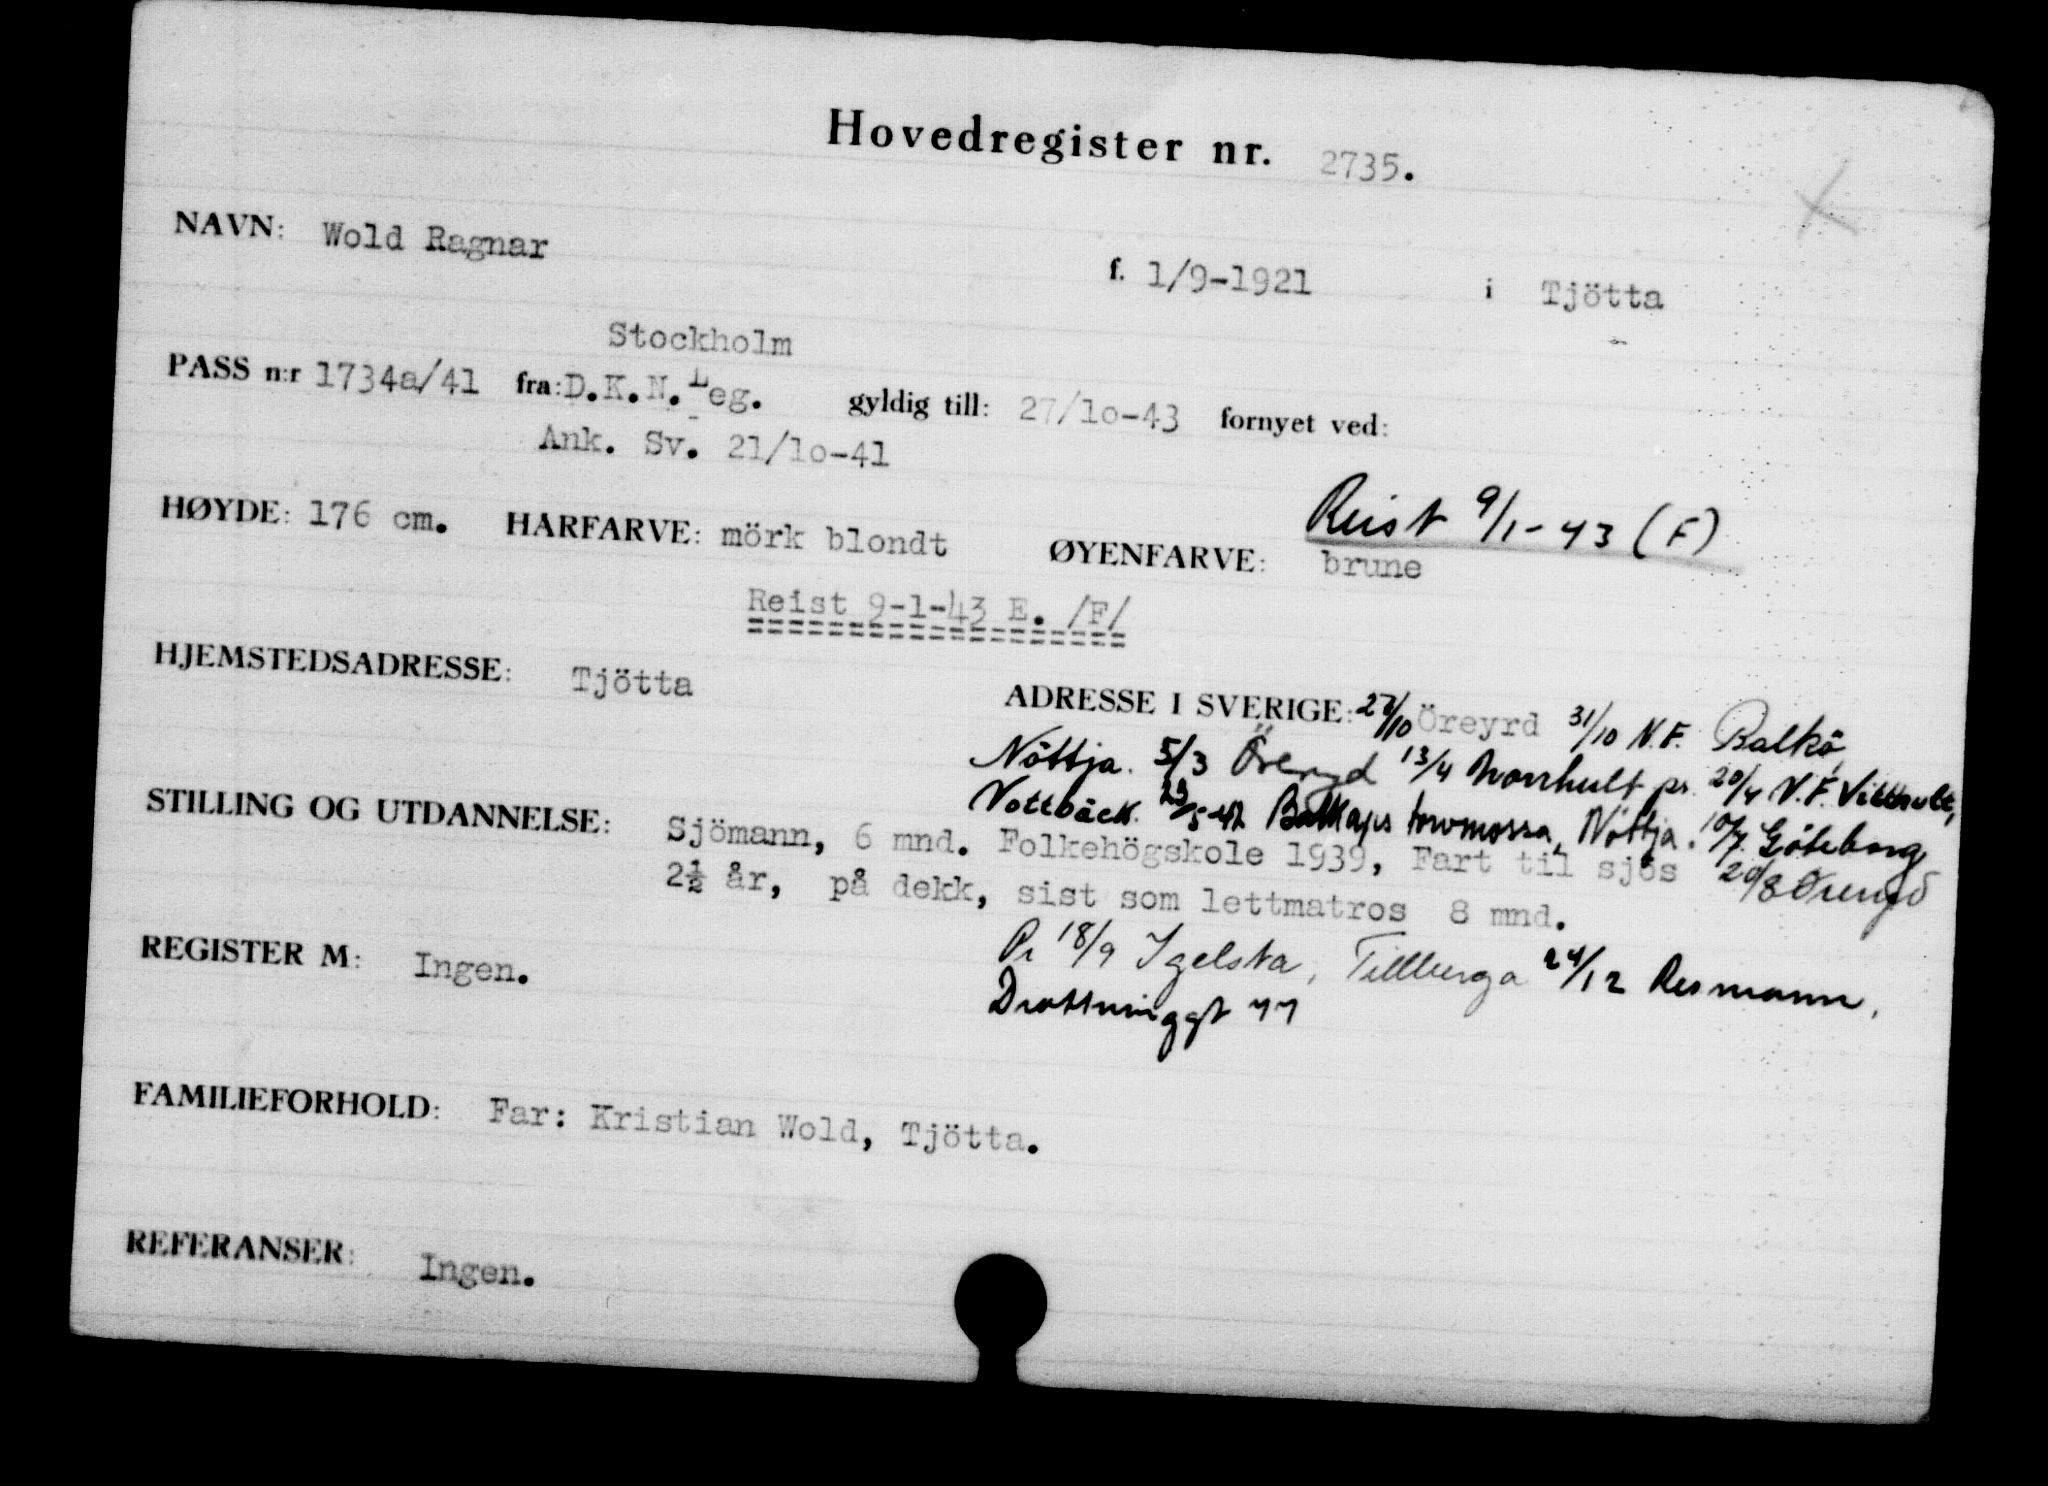 Hovedregister nr. 2735.
NAVN: Wold Ragnar f. 1/9-1921 i Tjötta
Stockholm
PASS n:r 1734a/41 fra: D.K.N.Leg. gyldig till: 27/10-43 fornyet ved:
Ank. Sv. 21/10-41
Reist 9/1-43 (F)
HØYDE: 176 cm. HÅRFARVE: mörk blondt ØYENFARVE: brune
Reist 9-1-43 E. /F/
HJEMSTEDSADRESSE: Tjötta
ADRESSE I SVERIGE: 27/10 Öreyrd 31/10 N.F. Balkö,
Nöttja. 5/3 Öreryd 13/4 Norrhult pr. 20/4 N.F. Vitthult,
Vottbäck. 29/5-42 Balkaps torvmossa, Nöttja. 10/7. Göteborg
STILLING OG UTDANNELSE: Sjömann, 6 mnd. Folkehögskole 1939, Fart til sjös 20/8 Öreryd
2½ år, på dekk, sist som lettmatros 8 mnd.
REGISTER M: Ingen.
Pr 18/9 Igelsta, Tillberga 24/12 Resmann,
Drottninggt 77
FAMILIEFORHOLD: Far: Kristian Wold, Tjötta.
REFERANSER: Ingen.